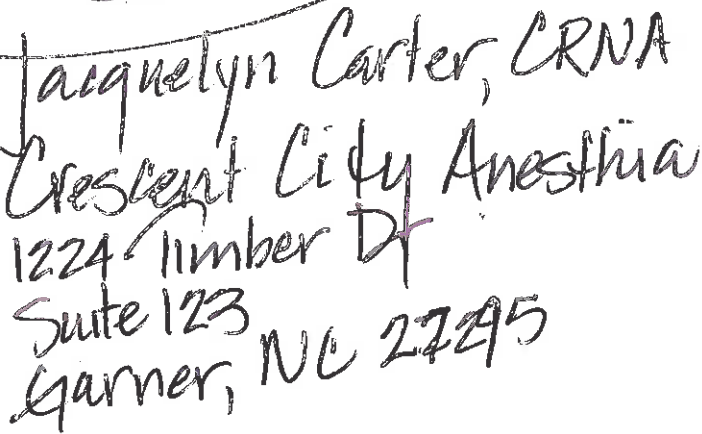 Jacquelyn Carter, CRNA
Crescent City Anesthia
1224 Timber Dr
Suite 123
Garner, NC 27295